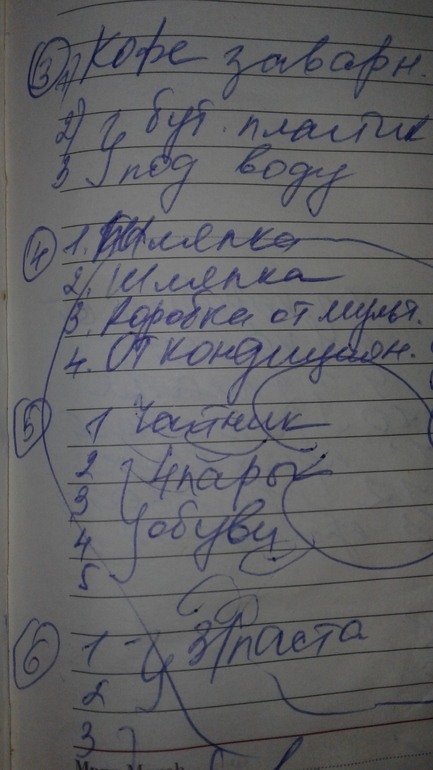 ③ 1) Кофе заварн.
2) } бут. пластик
3 } под воду
④ 1. Шляпка
2. Шляпка
3. Коробка от мульт.
4. От кондицион.
⑤ 1 Чайник
2 } 4 пары
3
4 } обуви
5
⑥ 1 - } З/паста
2
3 }